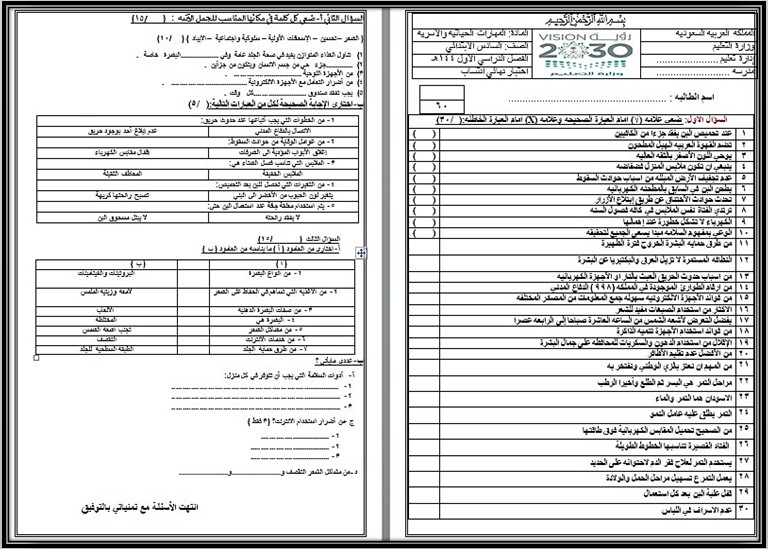 بسم الله الرحمن الرحيم
المملكة العربية السعودية
وزارة التعليم
إدارة تعليم ...................
مدرسة ......................
VISION رؤية
2030
وزارة التعليم
المادة: المهارات الحياتية والاسرية
الصف: السادس الابتدائي
الفصل الدراسي الاول ١٤٤هـ
اختبار نهائي انتساب
٦٠
اسم الطالبه: ........................................
السؤال الاول: ضعي علامه (√) امام العبارة الصحيحه وعلامه (X) امام العبارة الخاطئه: ( /٣٠)
١ عند تحميص البن يفقد جزءا من الكافيين ( )
٢ تضم القهوة العربيه الهيل المطحون ( )
٣ يوحي اللون الأصفر بالثقه العاليه ( )
٤ ينبغي ان تكون ملابس المنزل فضفاضه ( )
٥ عدم تجفيف الأرض المبلله من اسباب حوادث السقوط ( )
٦ يطحن البن في السابق بالمطحنه الكهربائيه ( )
٧ تحدث حوادث الأختناق عن طريق إبتلاع الأزرار ( )
٨ ترتدي الفتاة نفس الملابس في كافه فصول السنه ( )
٩ الكهرباء لا تشكل خطورة عند إهمالها ( )
١٠ الوعي بمفهوم السلامه مبدا يسعى الجميع لتحقيقه ( )
١١ من طرق حمايه البشرة الخروج فترة الظهيرة
١٢ النظافه المستمرة لا تزيل العرق والبكتيريا عن البشرة
١٣ من اسباب حدوث الحريق العبث بالنار او الأجهزة الكهربائيه
١٤ من ارقام الطوارئ الموجودة في المملكه (٩٩٨) الدفاع المدني
١٥ من فوائد الأجهزة الالكترونيه سهوله جمع المعلومات من المصادر المختلفه
١٦ الاكثار من استخدام الصبغات مفيد للشعر
١٧ يفضل التعرض لأشعه الشمس من الساعه العاشرة صباحا إلى الرابعه عصرا
١٨ من فوائد استخدام الأجهزة تنميه الذاكرة
١٩ الإقلال من استخدام الدهون والسكريات للمحافظه على جمال البشرة
٢٠ من الأفضل عدم تقليم الأظافر
٢١ من المهم ان نعتز بالزي الوطني ونفتخر به
٢٢ مراحل التمر هي البسر ثم الطلع وأخيرا الرطب
٢٣ الاسودان هما التمر والماء
٢٤ التمر يطلق عليه عامل النمو
٢٥ من الصحيح تحميل المقابس الكهربائية فوق طاقتها
٢٦ الفتاه القصيرة تناسبها الخطوط الطويلة
٢٧ يستخدم التمر لعلاج فقر الدم لاحتوائه على الحديد
٢٨ يعمل التمر ع تسهيل مراحل الحمل والولادة
٢٩ قفل علبة البن بعد كل استعمال
٣٠ عدم الاسراف في اللباس
السؤال الثاني أ- ضعي كل كلمة في مكانها المناسب للجمل الآتيه : ( /١٥)
( الصحر – تحسين – الإسعافات الأولية – سلوكية واجتماعية – الايباد ) ( /١٠)
١ تناول الغذاء المتوازن يفيد في صحة الجلد عامة وفي ..................البشرة خاصة .
٢ ................جزء حي من جسم الانسان ويتكون من جزأين .
٣ من الأجهزة اللوحية .................... .
٤ من أضرار التعامل مع الأجهزة الالكترونية .................... .
٥ يجب تفقد صندوق ....................كل وقت .
ب- اختاري الإجابة الصحيحة لكل من العبارات التالية: ( /٥)
١- من الخطوات التي يجب أتباعها عند حدوث حريق:
الاتصال بالدفاع المدني عدم إبلاغ أحد بوجود حريق
٢- من عوامل الوقاية من حوادث السقوط:
إغلاق الأبواب المؤدية الى الشرفات إقفال مقابس الكهرباء
٣- الملابس التي تناسب فصل الشتاء هي:
الملابس الخفيفة المعاطف الثقيلة
٤- من التغيرات التي تحصل للبن بعد التحميص:
يتغير لون الحبوب من الأخضر إلى البني تصبح رائحتها كريهة
٥- يتم استخدام ملعقة جافة عند استعمال البن حتى:
لا يفقد رائحته لا يبتل مسحوق البن
السؤال الثالث ( /١٥)
أ- اختاري من العامود ( أ ) ما يناسبه من العامود ( ب )
( أ ) ( ب )
١- من انواع البشرة البروتينات والفيتامينات
٢- من الأغذيه التي تساهم في الحفاظ على الشعر لامعه وزيتيه الملمس
٣- من صفات البشرة الدهنيه الألعاب
٤- البشرة هي المختلطه
٥- من مشاكل الشعر تجنب اشعه الشمس
٦- من خدمات الانترنت التقصف
٧- من طرق حمايه الجلد الطبقه السطحيه للجلد
ب- عددي ماياتي؟
أ- أدوات السلامة التي يجب أن تتوفر في كل منزل:
١- ........................................
٢- ........................................
٣- ........................................
ج- من أضرار استخدام الانترنت؟ (٣ فقط )
١- ....................
٢- ....................
٣- ....................
د- من مشاكل الشعر التقصف و....................و....................
انتهت الأسئلة مع تمنياتي بالتوفيق